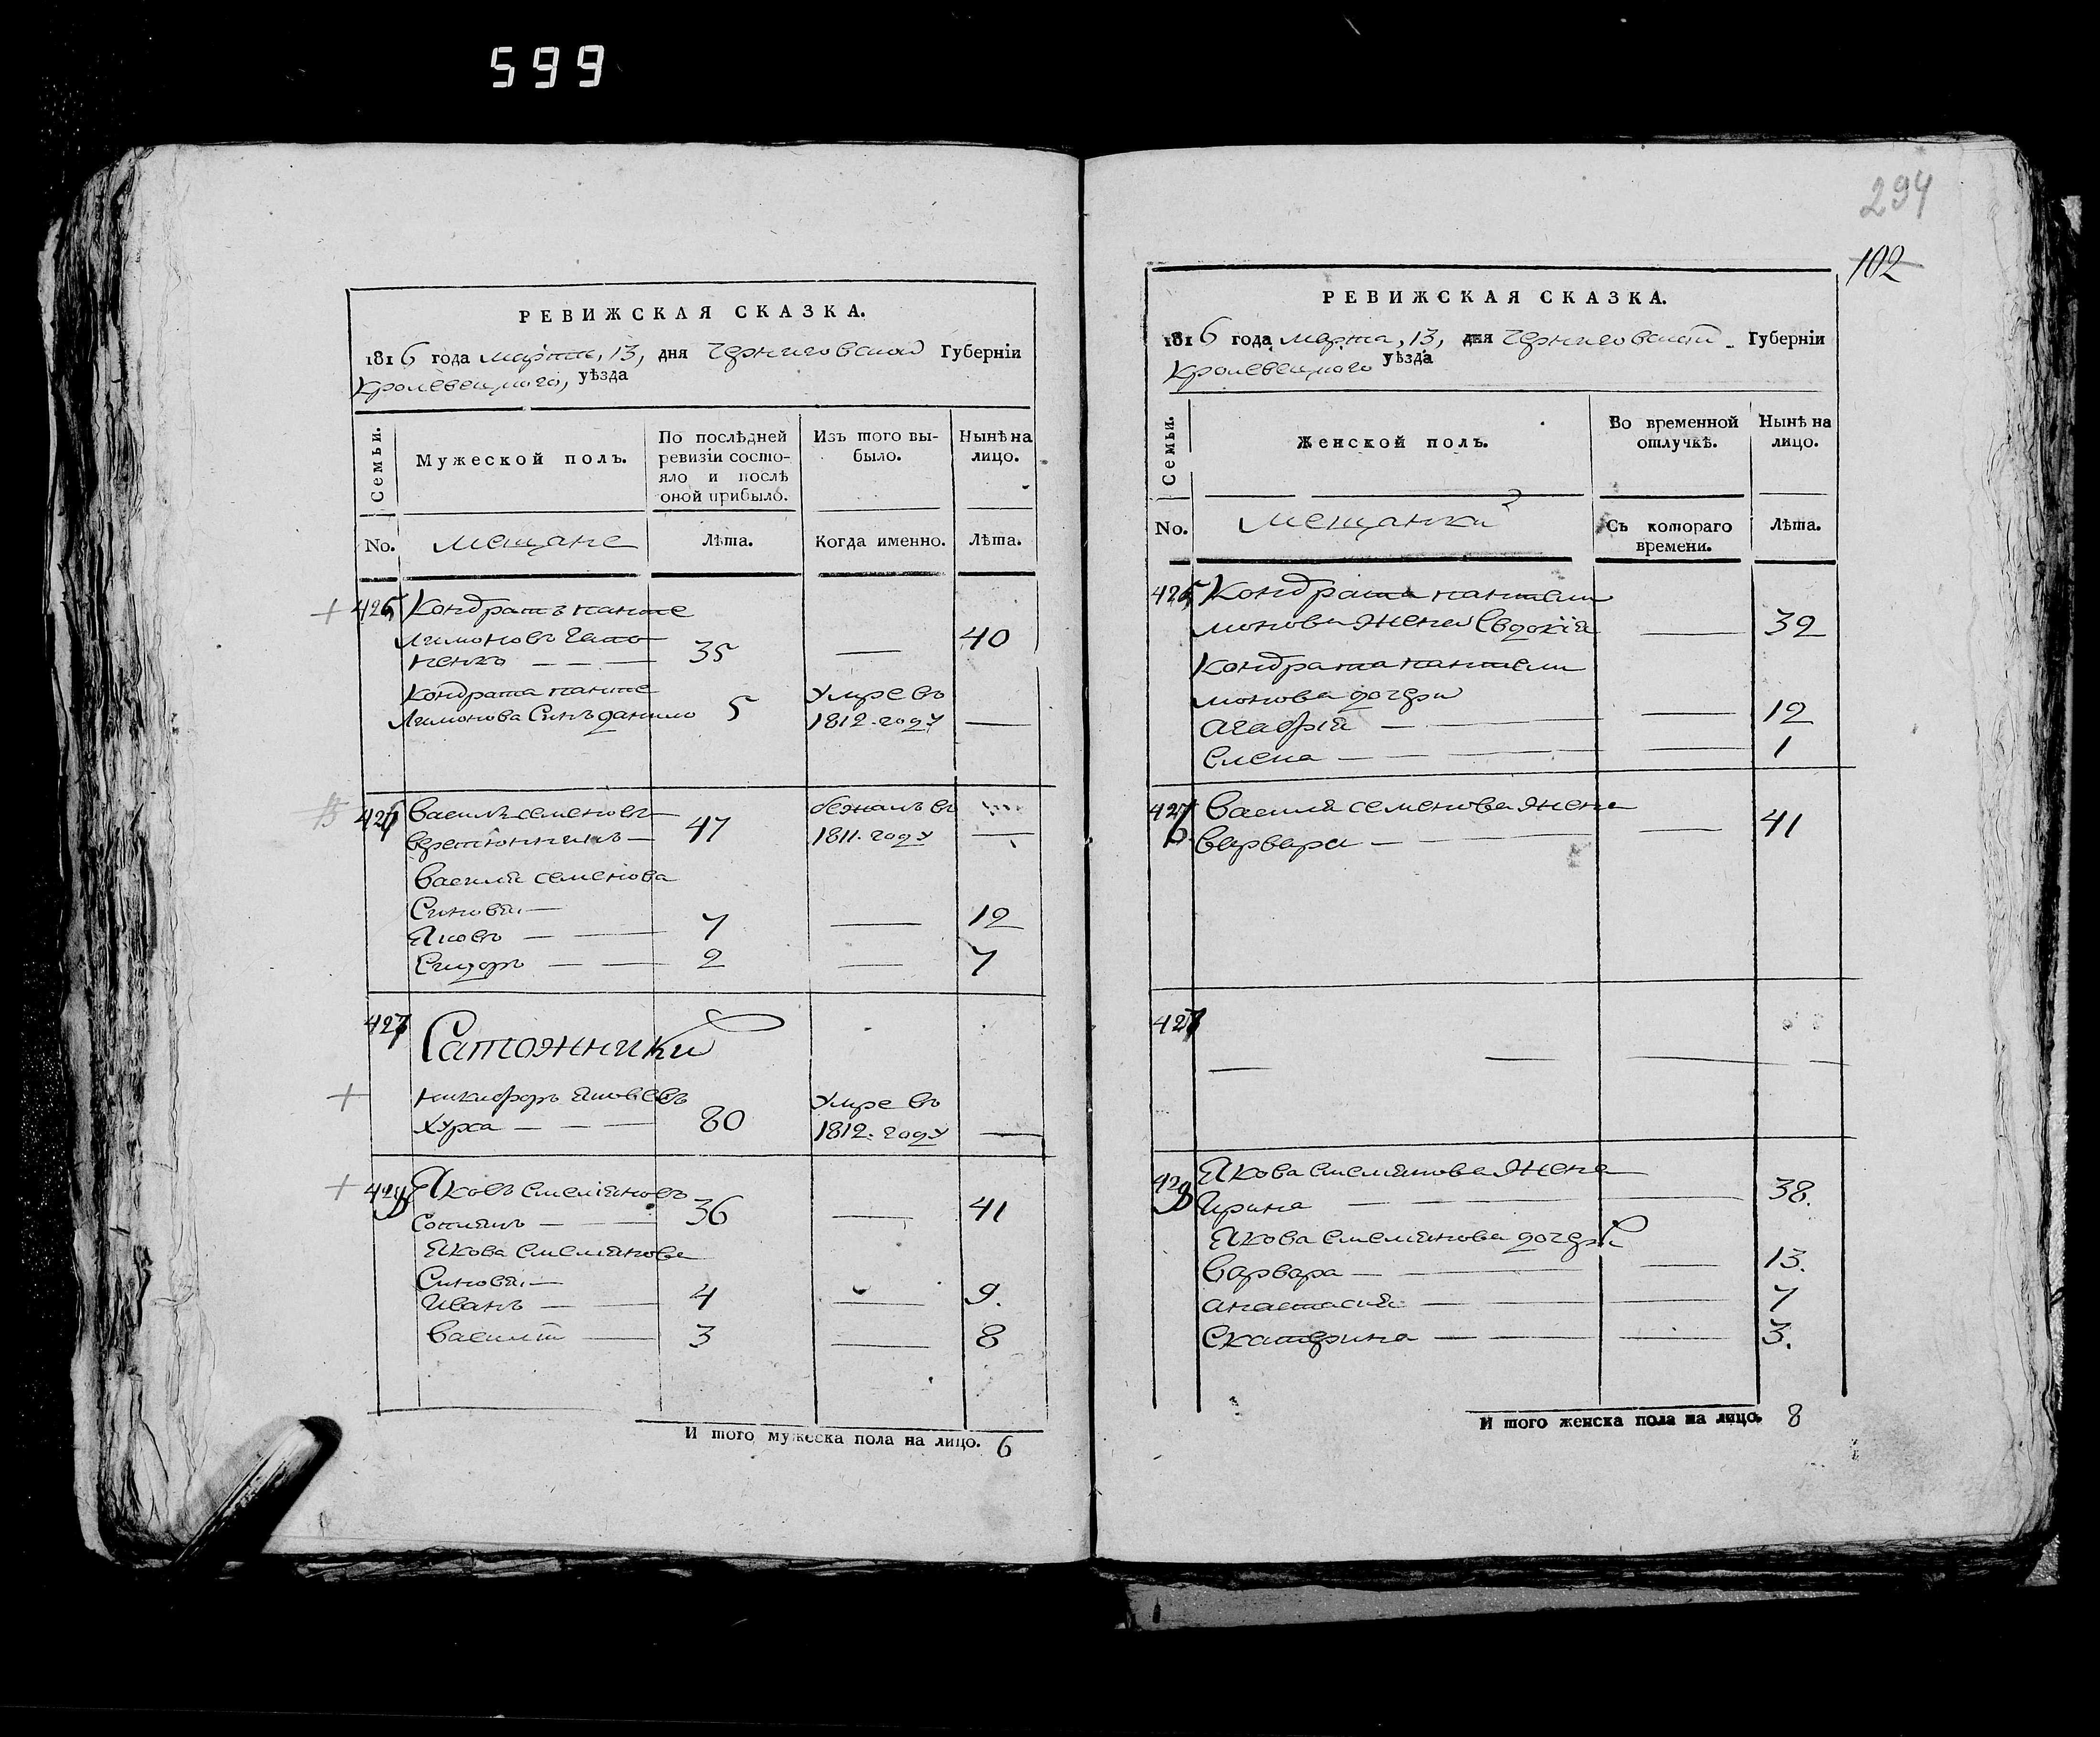 599
РЕВИЖСКАЯ СКАЗКА.
1816 года марта, 13, дня Черниговской Губерніи
Кролевецкого, уѣзда
Семьи.
Мужеской полъ.
По послѣдней ревизіи состояло и послѣ оной прибыло.
Изъ того выбыло.
Нынѣ на лицо.
No.
мещане
Лѣта.
Когда именно.
Лѣта.
425 Кондратъ панте
лимоновъ
35 — 40
Кондрата панте
лимонова Синъ данило 5
умре въ
1812. году —
426 Василь семеновъ
47
бежалъ въ
1811. году —
Василия семенова
Синовя. —
Яковъ — — 7 — 12
Сидоръ — — 2 — 7
427
Сапожники
никифоръ Яковлевъ
Хурса — — — 80
умре въ
1812. году —
428 Яковъ емеляновъ
— — 36 — 41
Якова емелянова
Синовя. —
Иванъ — — 4 — 9.
Василий — 3 — 8
И того мужеска пола на лицо. 6
294
102
РЕВИЖСКАЯ СКАЗКА.
1816 года марта, 13, дня Черниговской Губерніи
Кролевецкого уѣзда
Семьи.
Женской полъ.
Во временной отлучкѣ.
Нынѣ на лицо.
No.
мещанки
Съ котораго времени.
Лѣта.
425 Кондрата пантели
монова жена Евдокія — 32
Кондрата пантели
монова дочери
Агафія — — — 12
Елена — — — 1
426 Василия семенова жена
варвара — — — 41
427
— — — —
428 Якова емелянова жена
Ирина — — — 38.
Якова емелянова дочери
Варвара — — — 13.
анастасия — — — 7
Екатерина — — — 3.
И того женска пола на лицо. 8